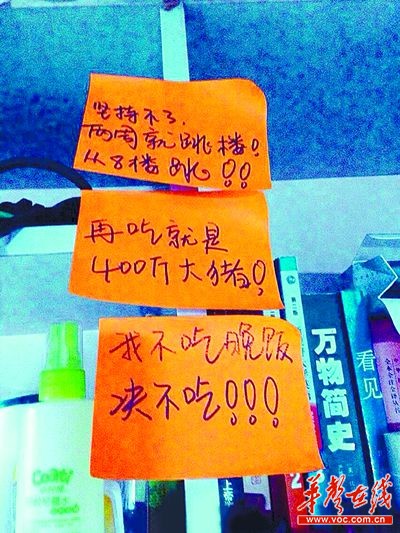 坚持不了,
两周就跳楼!
从8楼跳!!
再吃就是
400斤大猪!
我不吃晚饭
决不吃!!!
万物简史
看见
第二版
2
上帝
华声在线
www.voc.com.cn